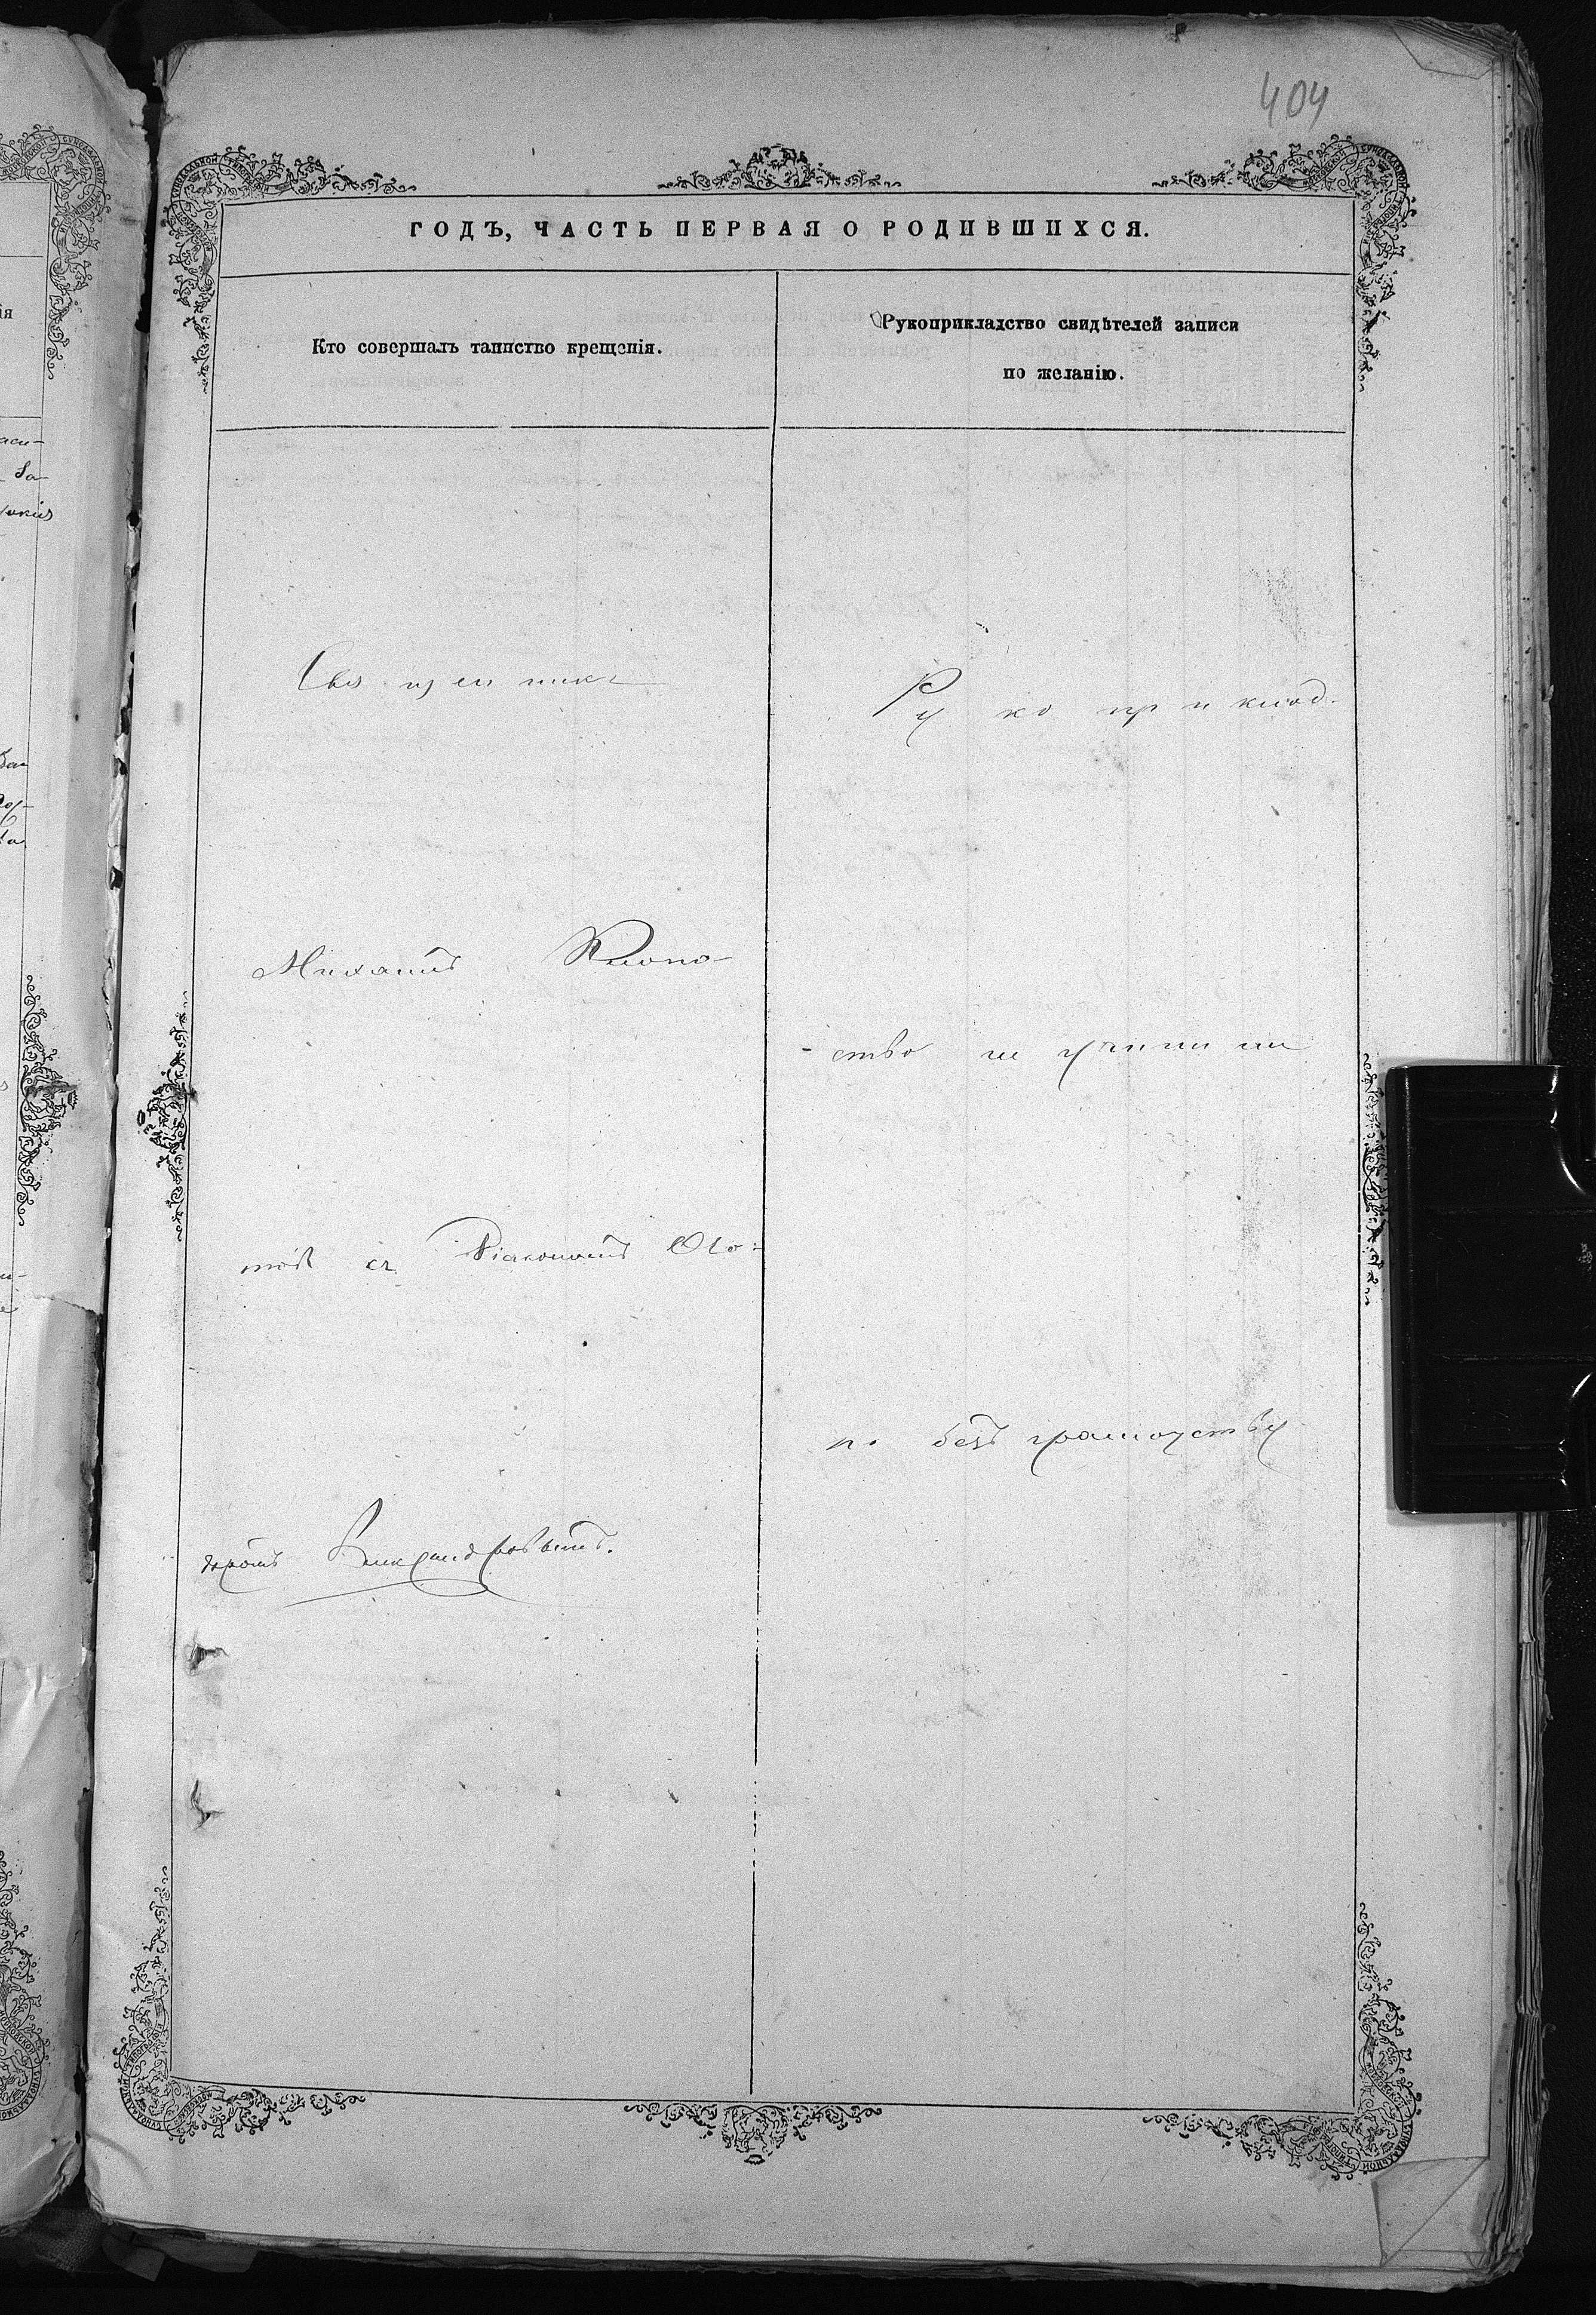 404
ГОДЪ, ЧАСТЬ ПЕРВАЯ О РОДИВШИХСЯ.
Кто совершалъ таинство крещенія.
Рукоприкладство свидѣтелей записи
по желанію.
Священникъ
Михаилъ
съ Діакономъ Ѳео-
доромъ Александровымъ.
Рукоприклад-
-ство не учинили
по безъграмотству